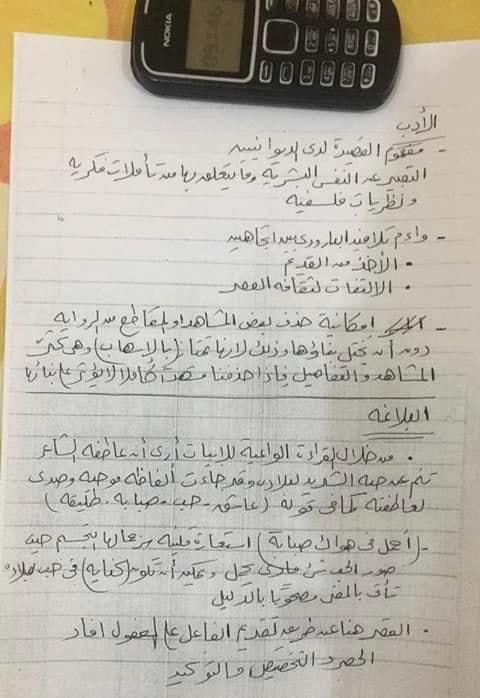 NOKIA
09:46
الأدب
- مفهوم القصيدة لدى الديوانيين
التعبير عن النفس البشرية وما يتعلق بها من تأملات فكرية
ونظريات فلسفيه
- واءم تلاميذ البارودى بين اتجاهين
• الأخذ من القديم
• الالتفات لثقافه العصر
- إمكانية حذف بعض المشاهد او المقاطع من الروايه
دون أن يختل بناؤها وذلك لانها تمتاز (بالإسهاب) وهى تكثر
المشاهد والتفاصيل فإذا حذفنا مشهدا كاملا لا يؤثر على بنائها
البلاغه
• من خلال القراءة الواعية للابيات أرى أن عاطفه الشاعر
تنم عن حبه الشديد لبلاده وقد جاءت ألفاظه موحيه وصدى
لعاطفته كما فى قوله (عاشق - حب - صبابه - طليقه)
- (أحمل فى هواك صبابة) استعارة مكنيه سر جمالها التجسيم حيث
صور الحب شئ مادى يحمل ويمكن أن تكون (كنايه) فى حب بلاده
تأتى بالمعنى مصحوبا بالدليل
• القصر هنا عن طريق تقديم الفاعل على المفعول افاد
الحصر والتخصيص والتوكيد